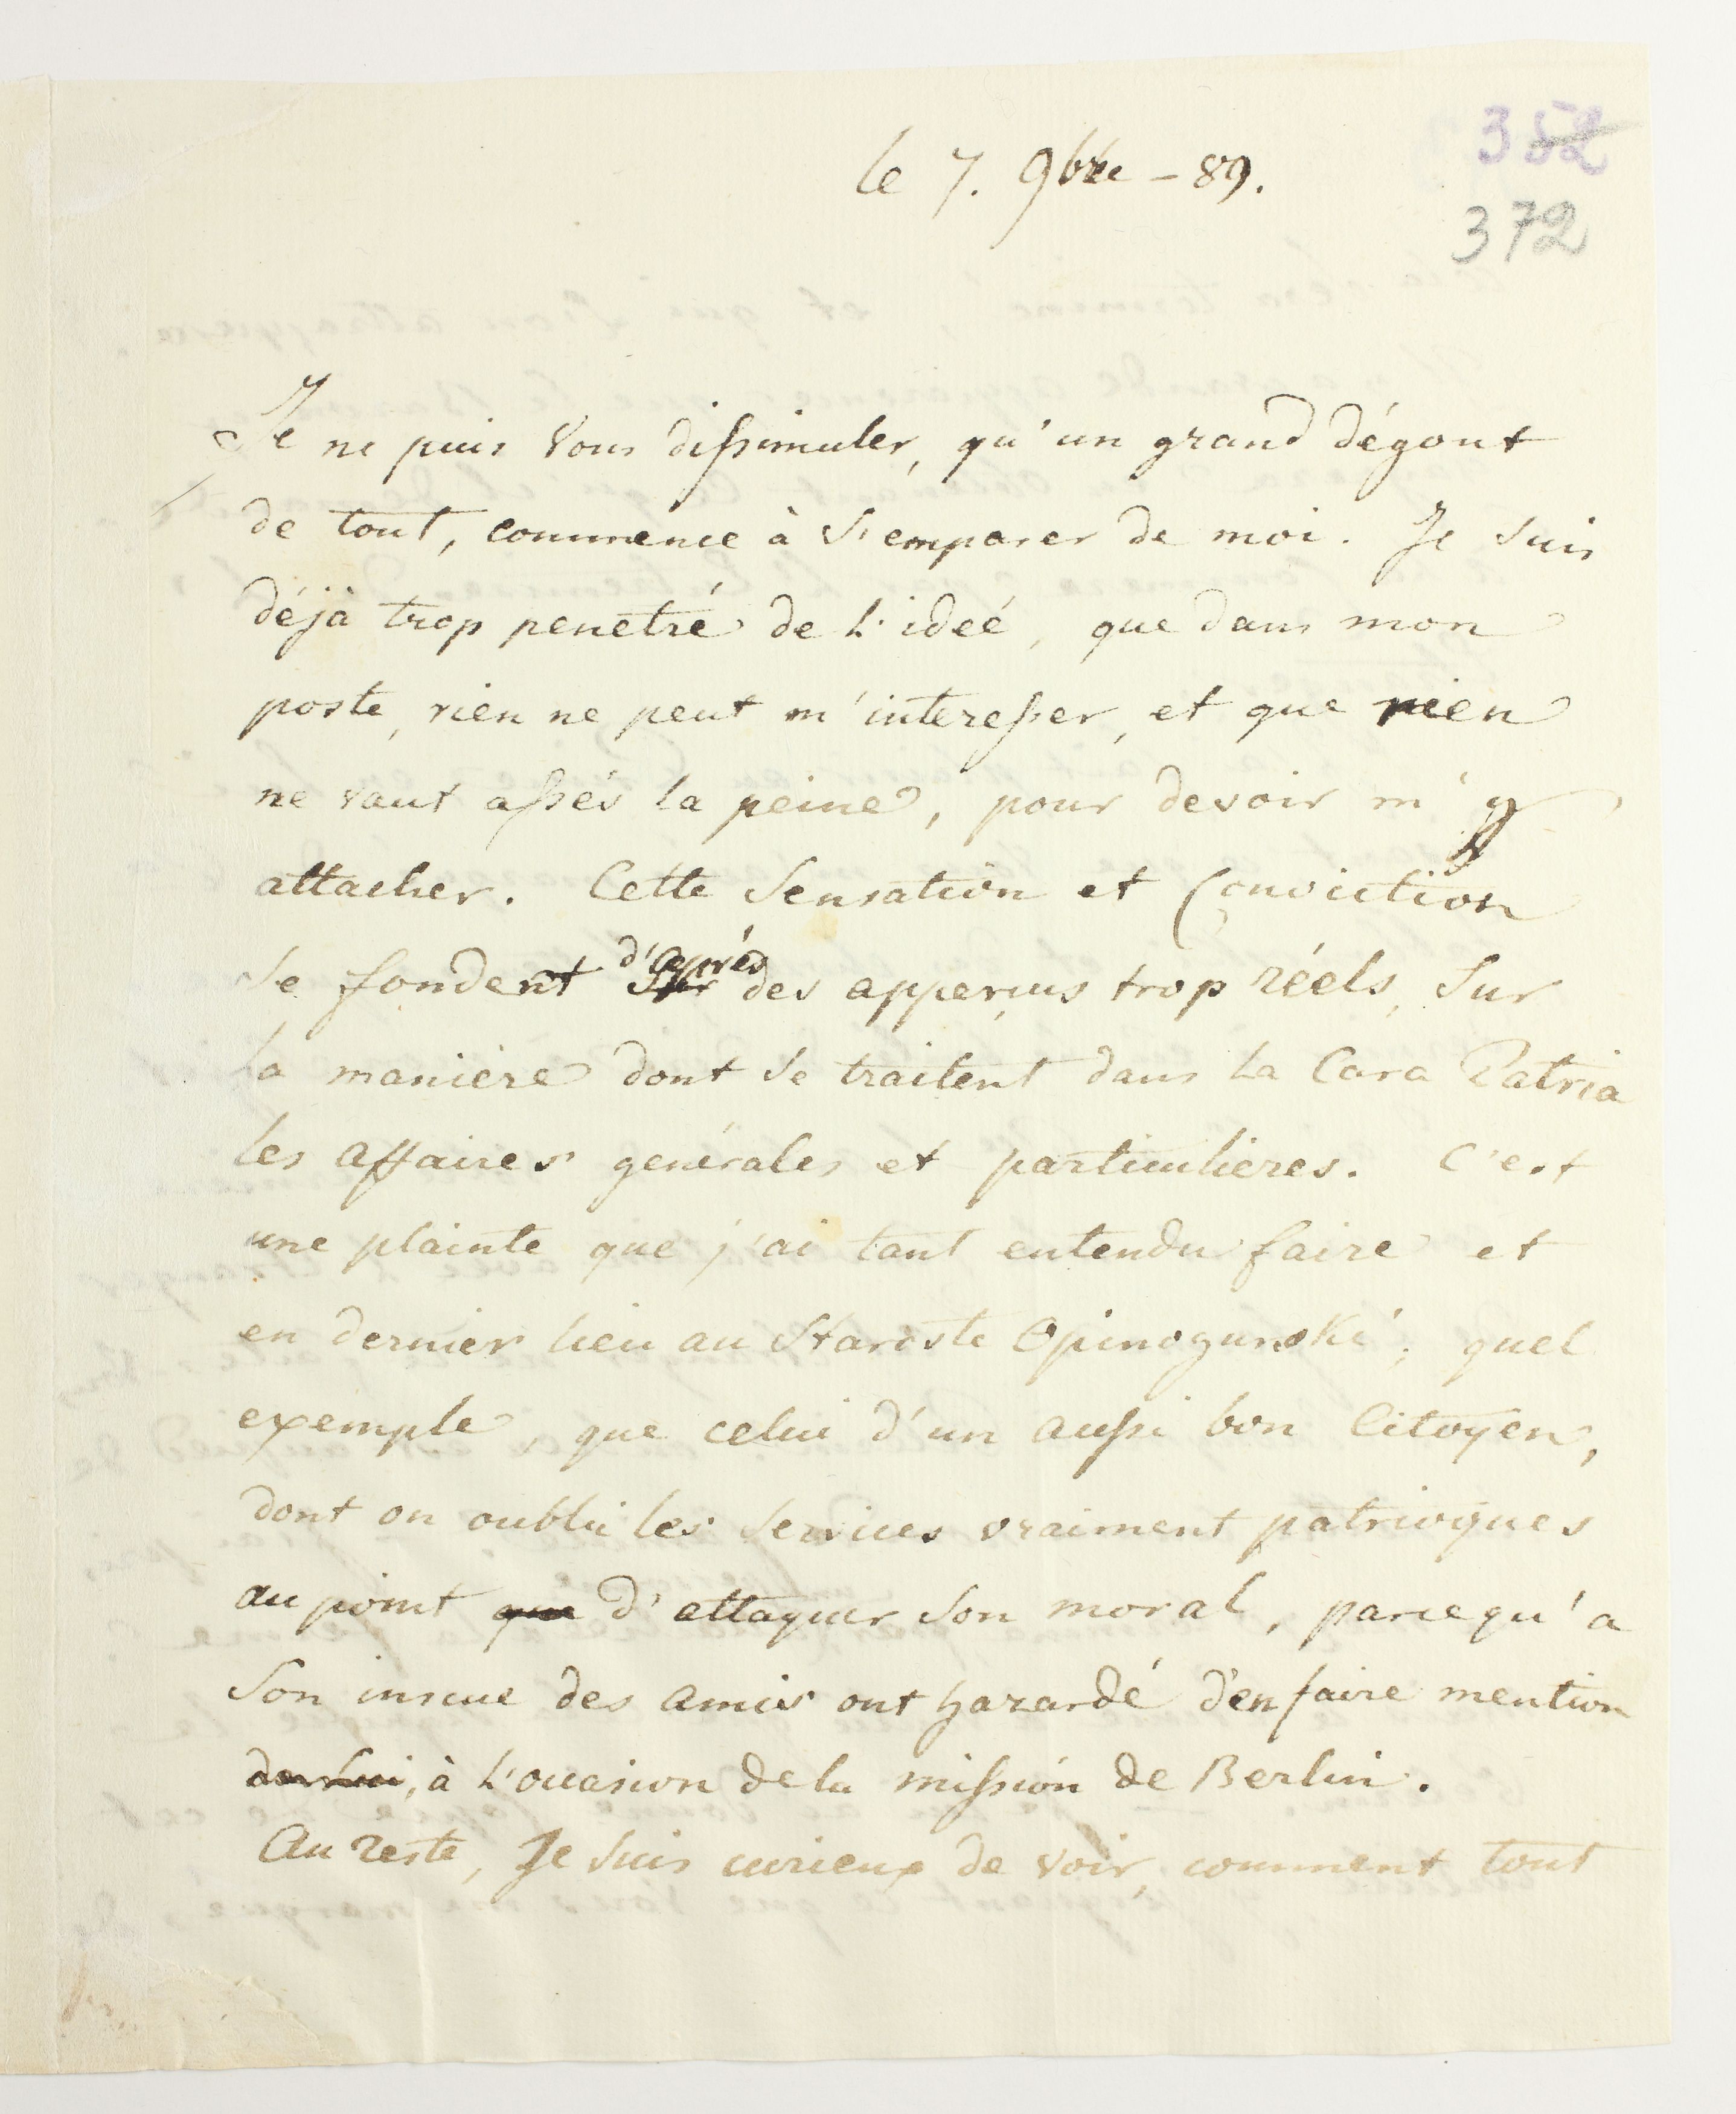 le 7. 9bre – 89.
352
372
Je ne puis Vous dissimuler, qu'un grand dégout
de tout, commence à s'emparer de moi. Je suis
déjà trop penetré de l'ideé, que dans mon
poste, rien ne peut m'interesser, et que rien
ne vaut assés la peine, pour devoir m'y
attacher. Cette Sensation et Conviction
se fondent d'après des apperçus trop réels, Sur
la manière dont se traitent dans la Cara Patria
les affaires générales et particulières. C'est
une plainte que j'ai tant entendu faire et
en dernier lieu au Staroste Opinogurski; quel
exemple, que celui d'un aussi bon Citoyen,
dont on oublie les services vraiment patrioques
au point que d'attaquer son moral, parcequ'a
Son inscue des amis ont hazardé d'en faire mention
, à l'occasion de la mission de Berlin.
Au reste, Je suis curieux de voir, comment tout